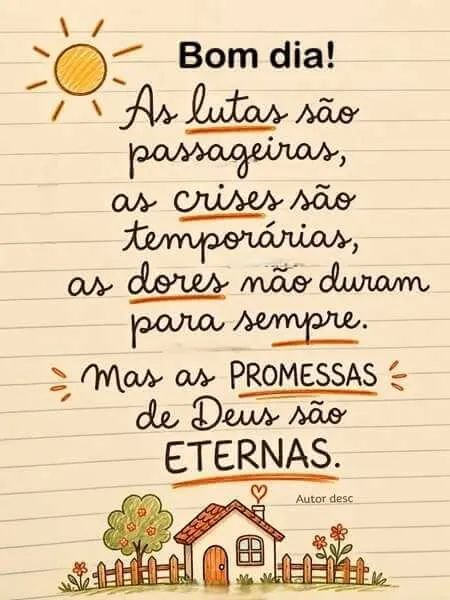 Bom dia!
As lutas são
passageiras,
as crises são
temporárias,
as dores não duram
para sempre.
Mas as PROMESSAS
de Deus são
ETERNAS.
Autor desc